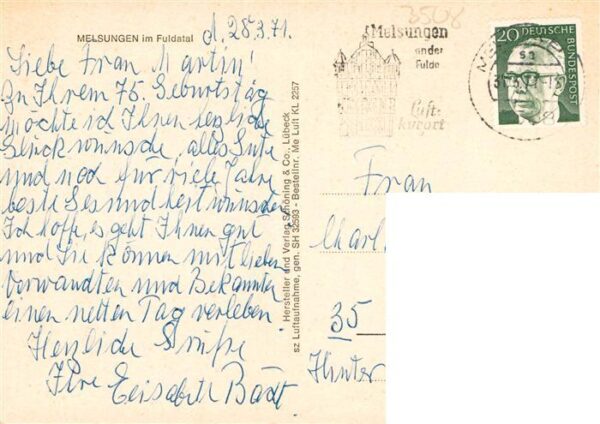 3508
MELSUNGEN im Fuldatal
A. 28.3.71.
Liebe Frau Martin!
Zu Ihrem 75. Geburtstag
möchte ich Ihnen herzliche
Glückwünsche, alles Gute
und noch für viele Jahre
beste Gesundheit wünschen.
Ich hoffe, es geht Ihnen gut
und Sie können mit lieben
Verwandten und Bekannten
einen netten Tag verleben
Herzliche Grüße
Ihre Elisabeth
Hersteller und Verlag Schöning & Co., Lübeck
sz Luftaufnahme, gen. SH 32593 - Bestellnr. Me Luft KL 2257
Melsungen
an der
Fulda
Luft-
kurort
20 DEUTSCHE BUNDESPOST
Frau
Charl
35
Hinter